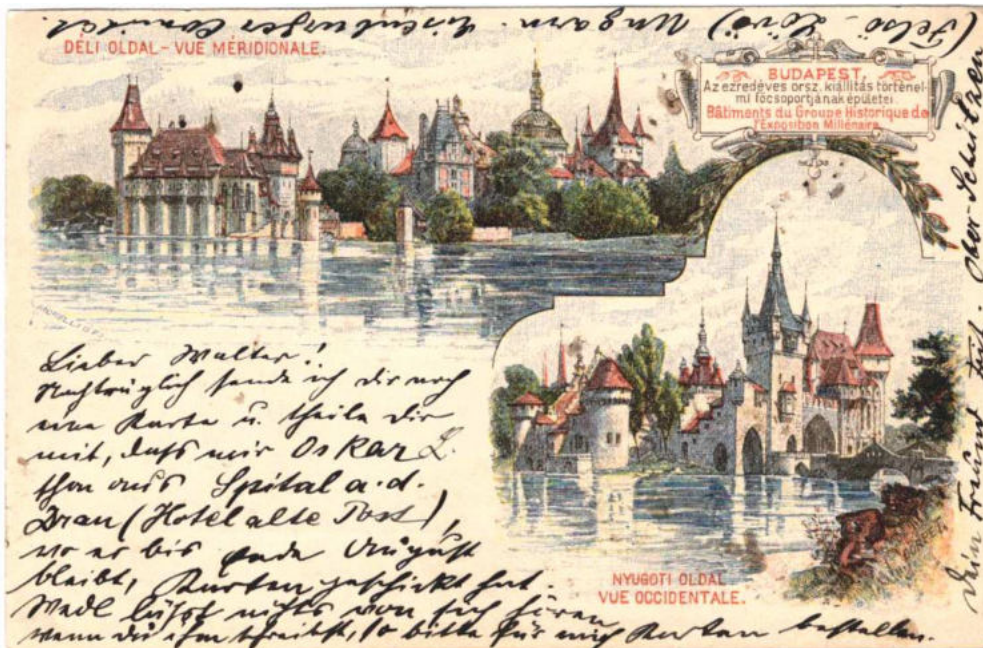 DÉLI OLDAL - VUE MÉRIDIONALE.
BUDAPEST.
Az ezredéves orsz. kiállitás történel-
mi főcsoportjának épületei
Bâtiments du Groupe Historique de
l'Exposition Millénaire
Lieber Walter!
Nachträglich sende ich dir noch
eine Karte u. theile dir
mit, dass mir Oskar L.
schon aus Spital a. d.
Drau (Hotel alte Post),
wo er bis Ende August
bleibt, Karten geschickt hat.
Wedl lässt nichts von sich hören
wenn du ihm schreibst, so bitte für mich Karten bestellen.
NYUGOTI OLDAL
VUE OCCIDENTALE.
Dein Freund Ober-Schützen
(Felső-Lövő) Ungarn. Eisenburger Comitat